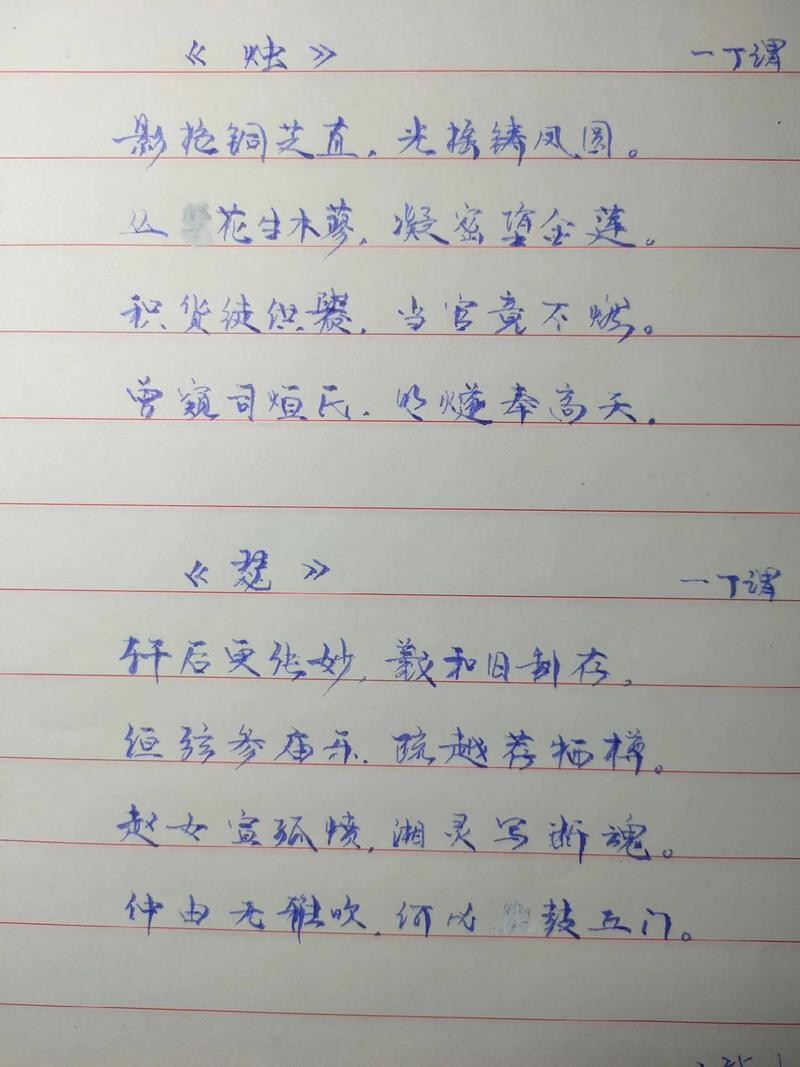 《烛》 一丁谓
影抢铜芝直，光摇铸凤圆。
丛花生木蓼，凝密堕金莲。
积货徒供爨，当官竟不燃。
曾窥司烜氏，明燧奉高天。
《瑟》 一丁谓
轩后更张妙，羲和旧制存。
絙弦参庙乐，疏越荐牺樽。
赵女宣孤愤，湘灵写断魂。
仲由无雅吹，何必鼓丘门。